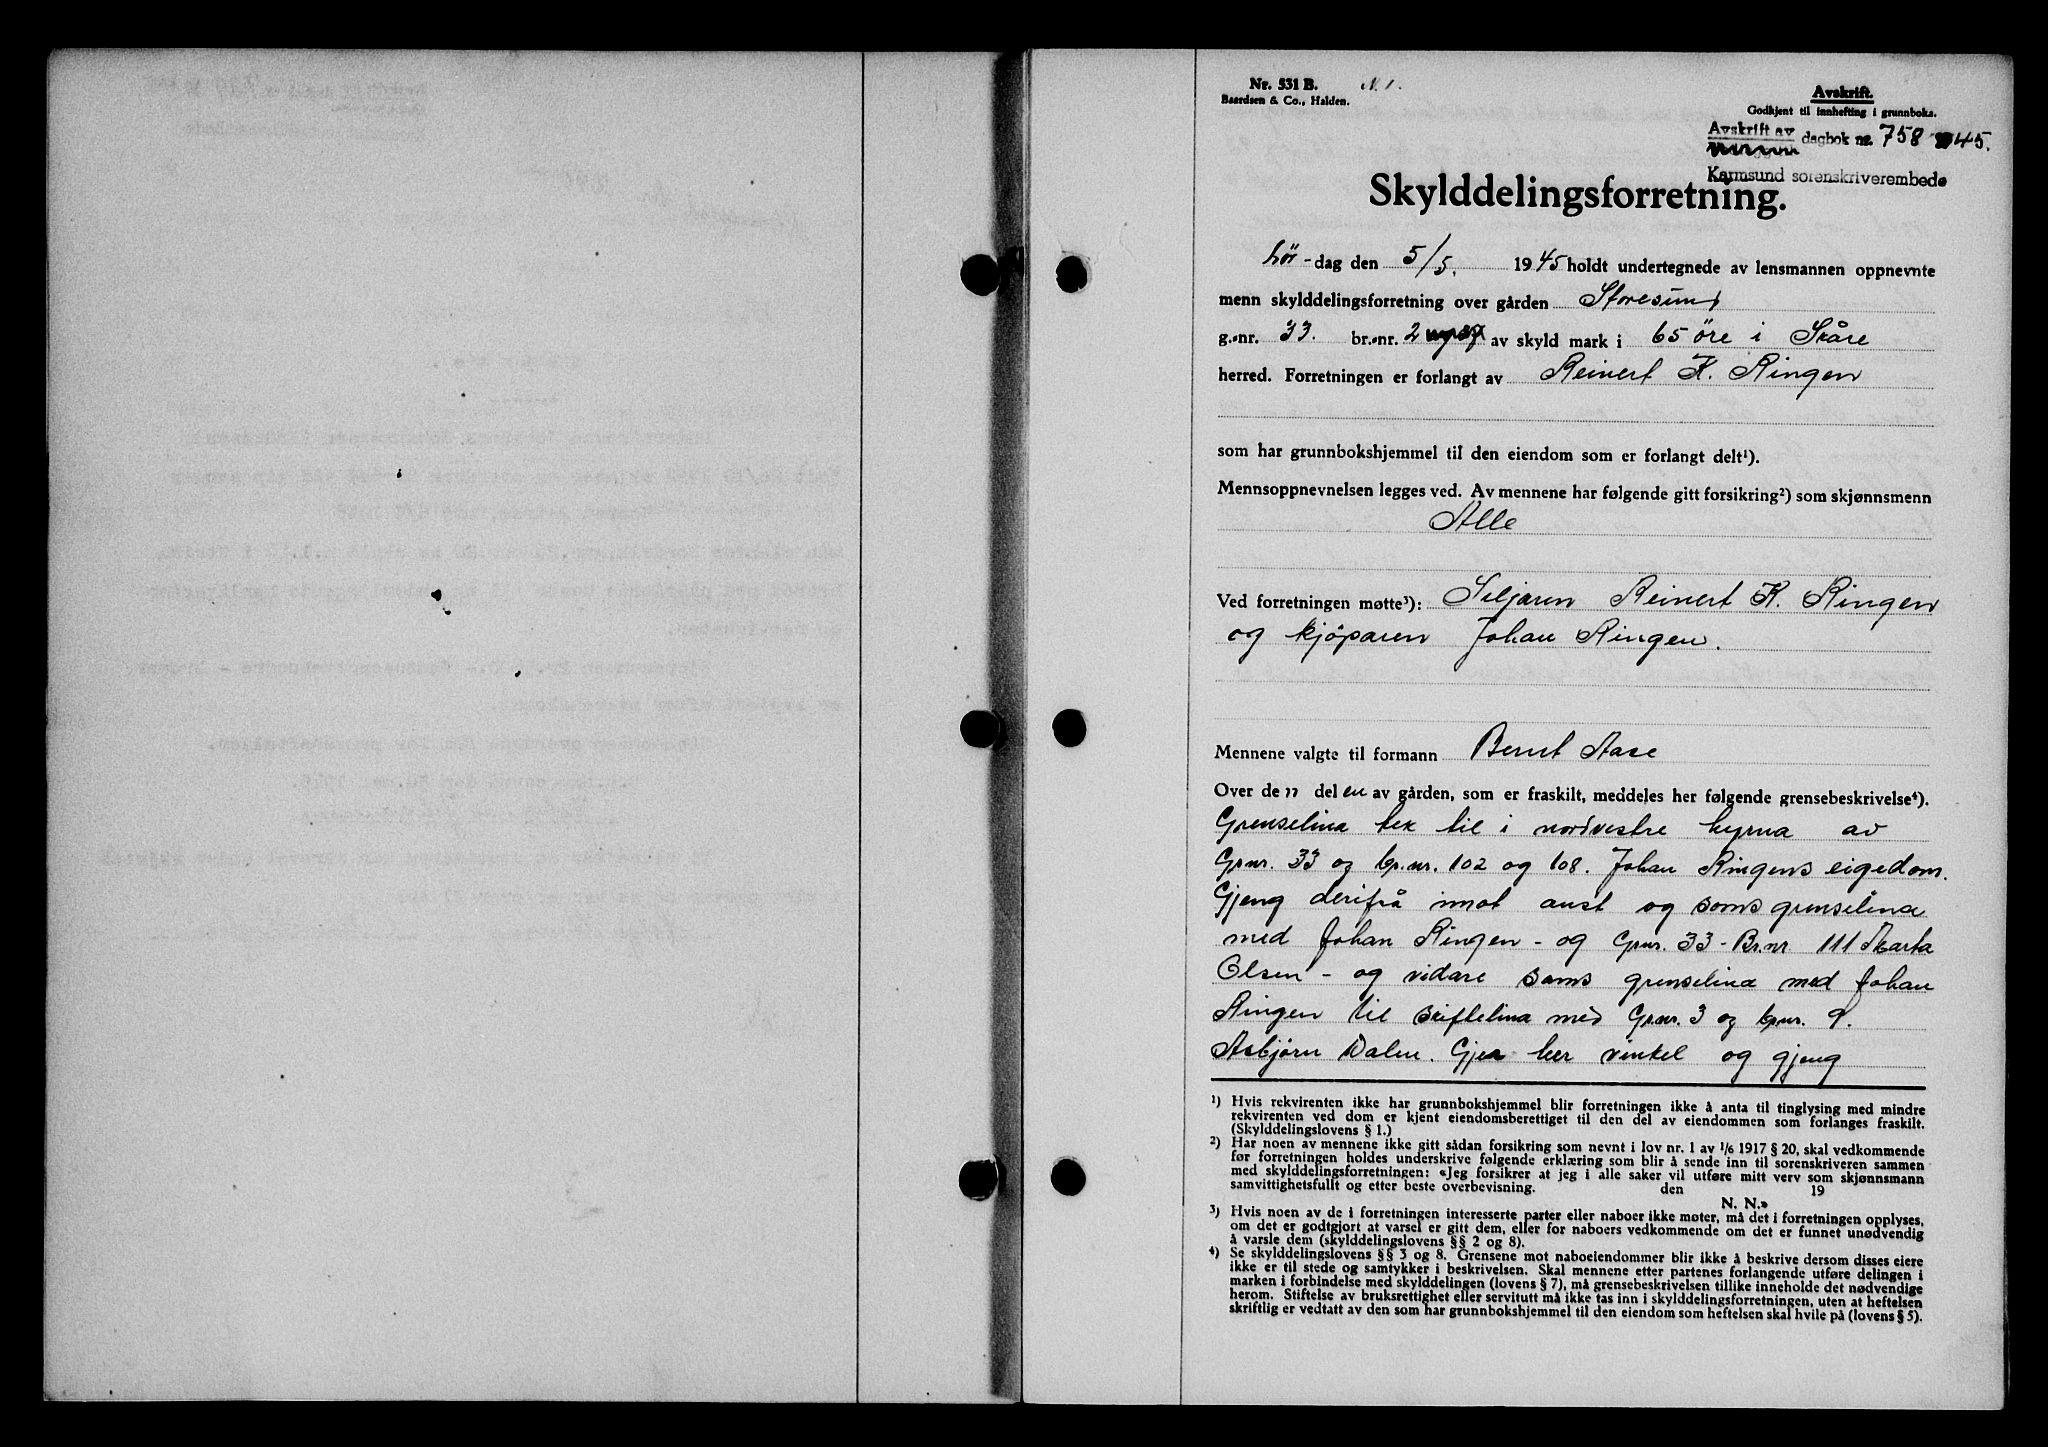 Nr. 531 B. N. 1.
Baardsen & Co., Halden.
Avskrift.
Godkjent til innhefting i grunnboka.
Avskrift av dagbok nr. 758 1945.
Karmsund sorenskriverembede
Skylddelingsforretning.
Lør-dag den 5/5. 1945 holdt undertegnede av lensmannen oppnevnte
menn skylddelingsforretning over gården Storesund
g.-nr. 33. br.-nr. 2 av skyld mark i 65 öre i Skåre
herred. Forretningen er forlangt av Reinert K. Ringen
som har grunnbokshjemmel til den eiendom som er forlangt delt¹).
Mennsoppnevnelsen legges ved. Av mennene har følgende gitt forsikring²) som skjønnsmenn
Alle
Ved forretningen møtte³): Seljaren Reinert K. Ringen
og kjöparen Johan Ringen.
Mennene valgte til formann Bernt Aase
Over de n del en av gården, som er fraskilt, meddeles her følgende grensebeskrivelse⁴).
Grenselina tek til i nordvestre hyrna av
Gr.nr. 33 og br.nr. 102 og 108. Johan Ringens eigedom.
Gjeng derifrå imot aust og sams grenselina
med Johan Ringen - og Gr.nr. 33 - Br.nr 111 Marta
Olsen - og vidare sams grenselina med Johan
Ringen til skiftelina med Gr.nr. 3 og br.nr. 9.
Asbjørn Dalen. Gjer her vinkel og gjeng
¹) Hvis rekvirenten ikke har grunnbokshjemmel blir forretningen ikke å anta til tinglysing med mindre
rekvirenten ved dom er kjent eiendomsberettiget til den del av eiendommen som forlanges fraskilt.
(Skylddelingslovens § 1.)
²) Har noen av mennene ikke gitt sådan forsikring som nevnt i lov nr. 1 av 1/6 1917 § 20, skal vedkommende
før forretningen holdes underskrive følgende erklæring som blir å sende inn til sorenskriveren sammen
med skylddelingsforretningen: «Jeg forsikrer at jeg i alle saker vil utføre mitt verv som skjønnsmann
samvittighetsfullt og etter beste overbevisning. den 19
N. N.»
³) Hvis noen av de i forretningen interesserte parter eller naboer ikke møter, må det i forretningen opplyses,
om det er godtgjort at varsel er gitt dem, eller for naboers vedkommende om det er funnet unødvendig
å varsle dem (skylddelingslovens §§ 2 og 8).
⁴) Se skylddelingslovens §§ 3 og 8. Grensene mot naboeiendommer blir ikke å beskrive dersom disses eiere
ikke er til stede og samtykker i beskrivelsen. Skal mennene etter partenes forlangende utføre delingen i
marken i forbindelse med skylddelingen (lovens § 7), må grensebeskrivelsen tillike inneholde det nødvendige
herom. Stiftelse av bruksrettighet eller servitutt må ikke tas inn i skylddelingsforretningen, uten at heftelsen
skriftlig er vedtatt av den som har grunnbokshjemmel til den eiendom som heftelsen skal hvile på (lovens § 5).